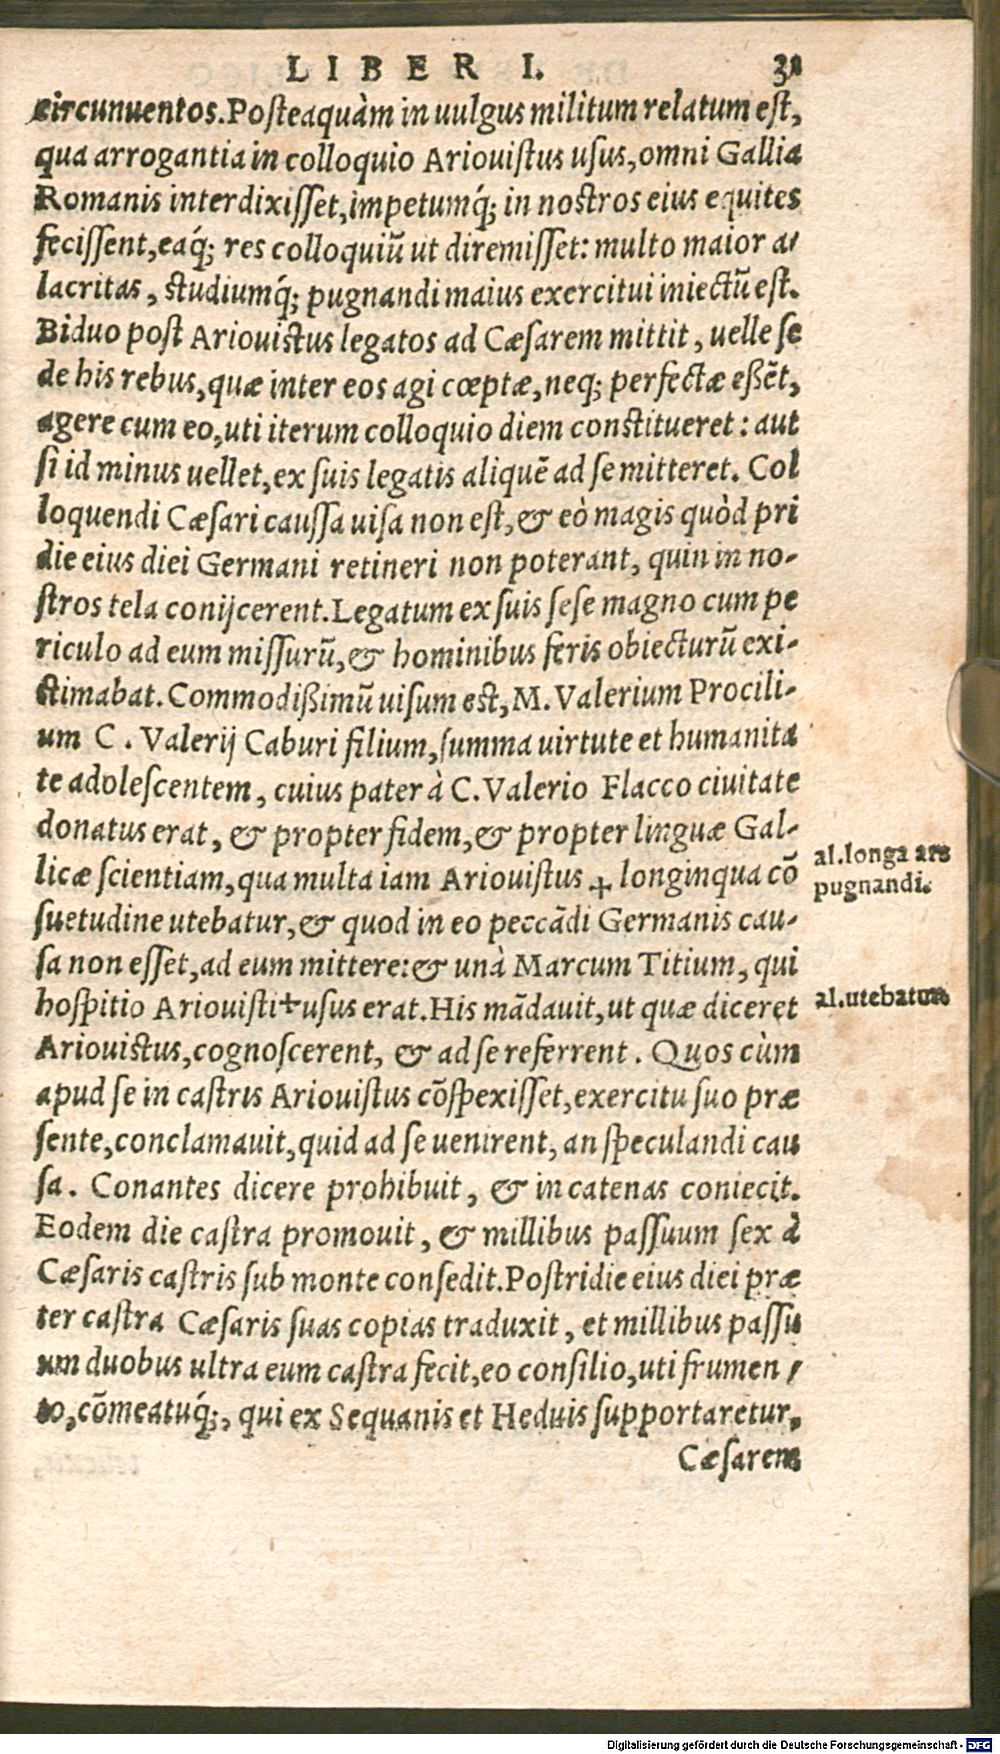 LIBER I. 31
circunuentos. Posteaquàm in uulgus militum relatum est,
qua arrogantia in colloquio Ariouistus usus, omni Gallia
Romanis interdixisset, impetumq́; in nostros eius equites
fecissent, eaq́; res colloquiũ ut diremisset: multo maior a-
lacritas, studiumq́; pugnandi maius exercitui iniectũ est.
Biduo post Ariouistus legatos ad Cæsarem mittit, uelle se
de his rebus, quæ inter eos agi cœptæ, neq; perfectæ eßẽt,
agere cum eo, uti iterum colloquio diem constitueret: aut
si id minus uellet, ex suis legatis aliquẽ ad se mitteret. Col
loquendi Cæsari caussa uisa non est, & eò magis quòd pri
die eius diei Germani retineri non poterant, quin in no-
stros tela conijcerent. Legatum ex suis sese magno cum pe
riculo ad eum missurũ, & hominibus feris obiecturũ exi-
stimabat. Commodißimũ uisum est, M. Valerium Procili-
um C. Valerij Caburi filium, summa uirtute et humanita
te adolescentem, cuius pater à C. Valerio Flacco ciuitate
donatus erat, & propter fidem, & propter linguæ Gal-
licæ scientiam, qua multa iam Ariouistus + longinqua cõ
suetudine utebatur, & quod in eo peccãdi Germanis cau-
sa non esset, ad eum mittere: & unà Marcum Titium, qui
hospitio Ariouisti + usus erat. His mãdauit, ut quæ diceret
Ariouistus, cognoscerent, & ad se referrent. Quos cùm
apud se in castris Ariouistus cõspexisset, exercitu suo præ
sente, conclamauit, quid ad se uenirent, an speculandi cau
sa. Conantes dicere prohibuit, & in catenas coniecit.
Eodem die castra promouit, & millibus passuum sex à
Cæsaris castris sub monte consedit. Postridie eius diei præ
ter castra Cæsaris suas copias traduxit, et millibus passu
um duobus ultra eum castra fecit, eo consilio, uti frumen-
to, cõmeatuq́;, qui ex Sequanis et Heduis supportaretur,
Cæsarem
al. longa ars
pugnandi.
al. utebatur
Digitalisierung gefördert durch die Deutsche Forschungsgemeinschaft - DFG